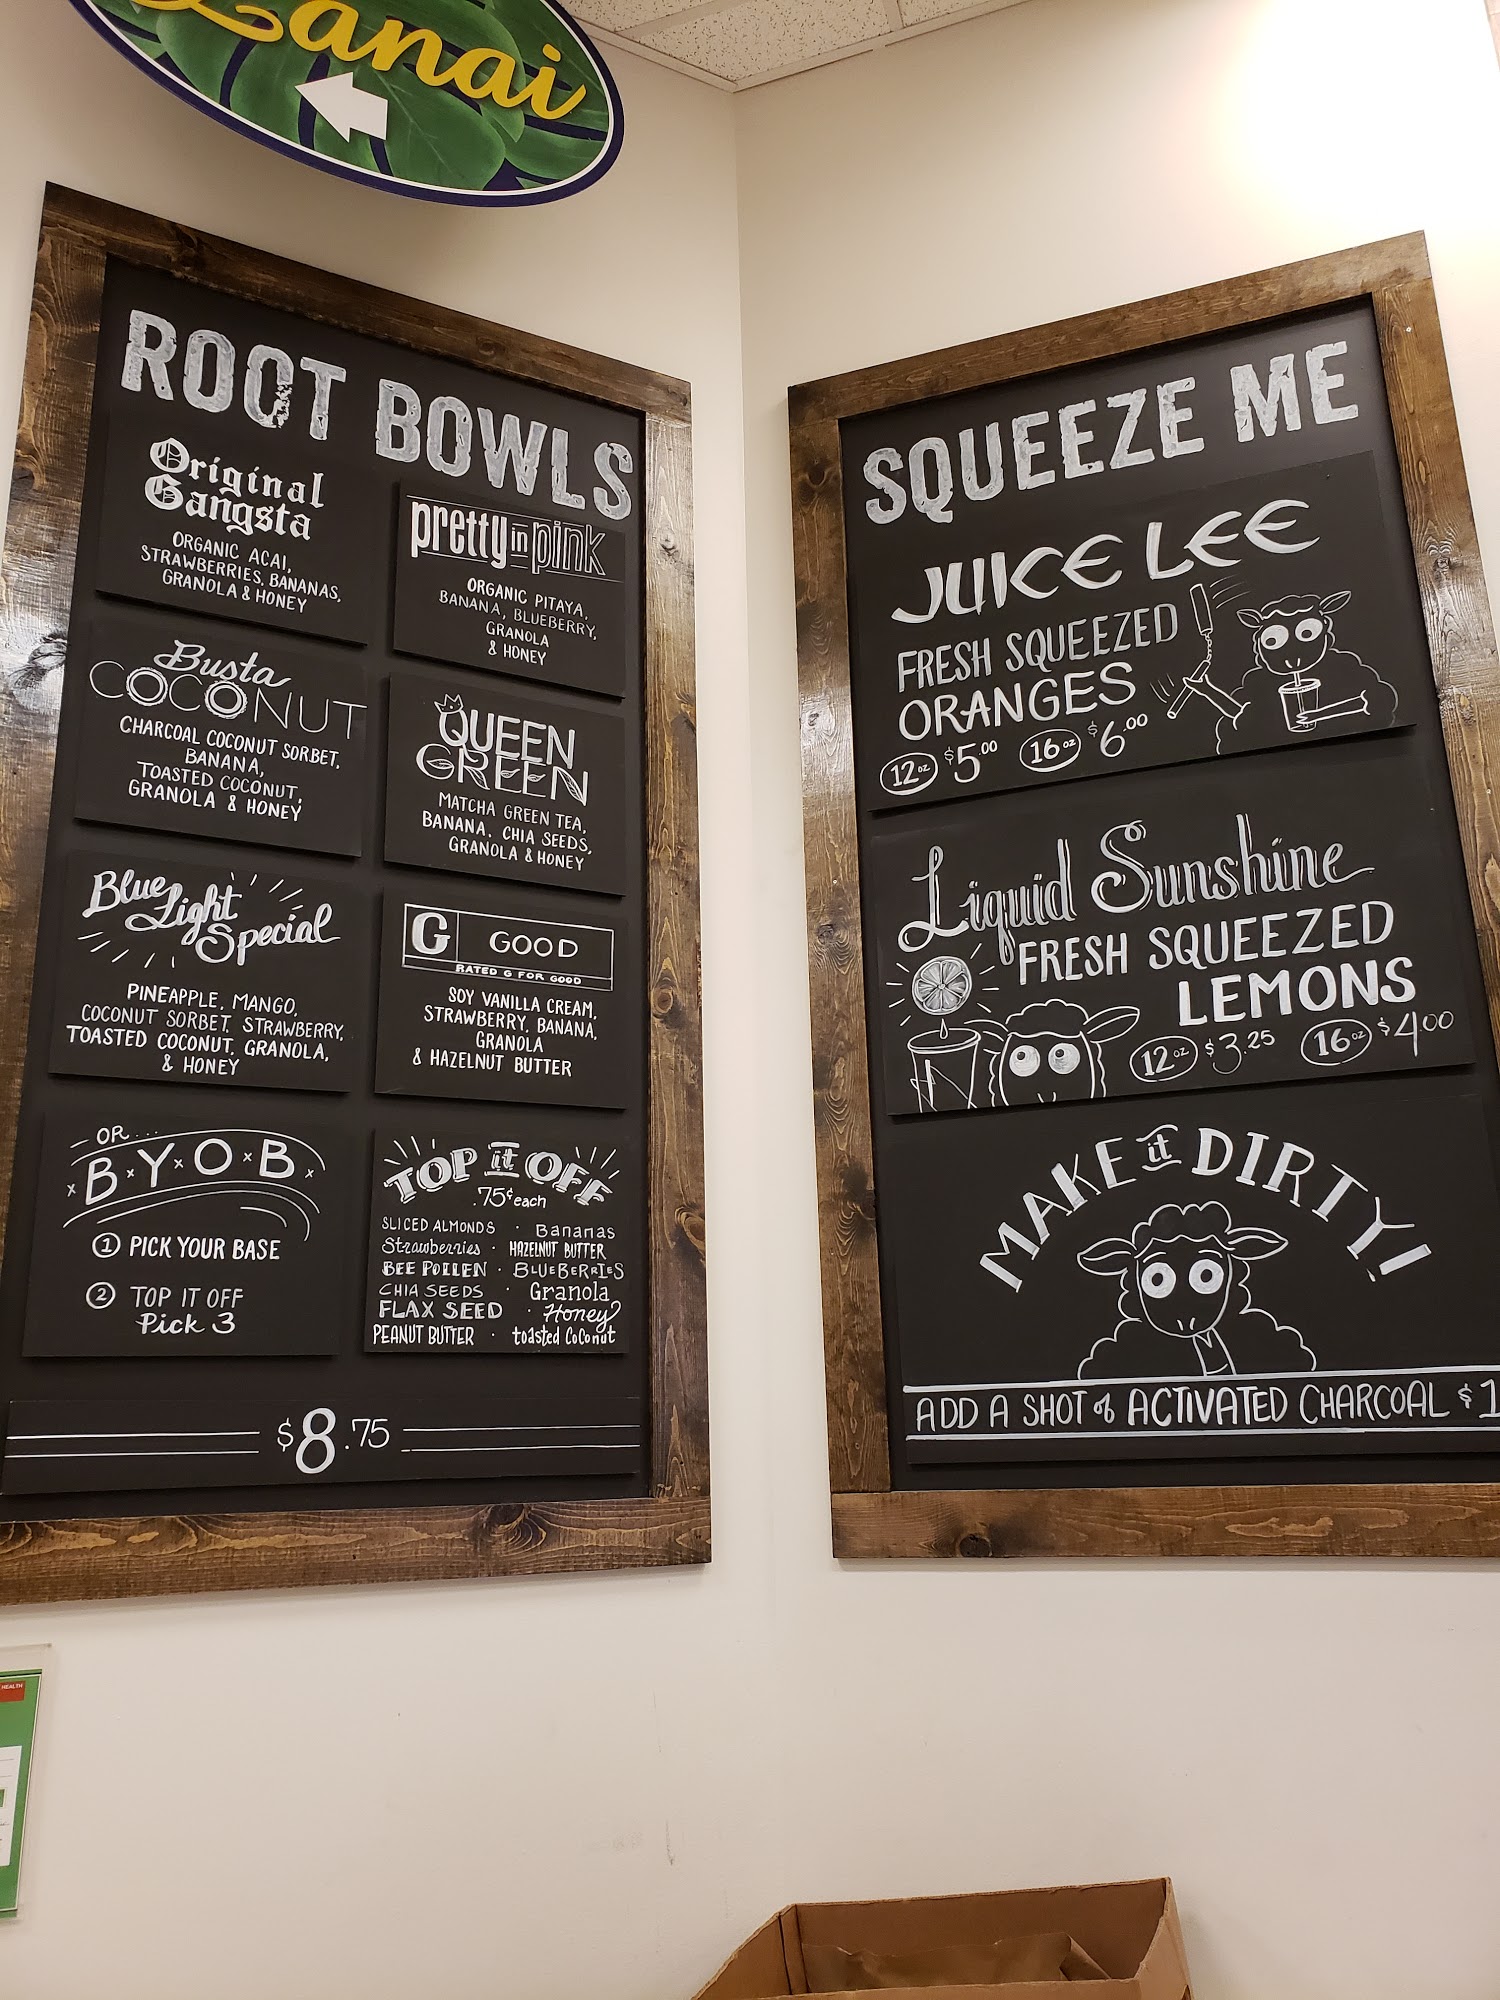 Lanai
ROOT BOWLS
Original
Gangsta
ORGANIC ACAI,
STRAWBERRIES, BANANAS,
GRANOLA & HONEY
pretty in pink
ORGANIC PITAYA,
BANANA, BLUEBERRY,
GRANOLA
& HONEY
Busta
COCONUT
CHARCOAL COCONUT SORBET,
BANANA,
TOASTED COCONUT,
GRANOLA & HONEY
QUEEN
GREEN
MATCHA GREEN TEA,
BANANA, CHIA SEEDS,
GRANOLA & HONEY
Blue
Light
Special
PINEAPPLE, MANGO,
COCONUT SORBET, STRAWBERRY,
TOASTED COCONUT, GRANOLA,
& HONEY
G GOOD
RATED G FOR GOOD
SOY VANILLA CREAM,
STRAWBERRY, BANANA,
GRANOLA
& HAZELNUT BUTTER
OR...
B x Y x O x B
1 PICK YOUR BASE
2 TOP IT OFF
Pick 3
TOP it OFF
.75¢ each
SLICED ALMONDS · Bananas
Strawberries · HAZELNUT BUTTER
BEE POLLEN · BLUEBERRIES
CHIA SEEDS · Granola
FLAX SEED · Honey
PEANUT BUTTER · toasted CoConut
$8.75
SQUEEZE ME
JUICE LEE
FRESH SQUEEZED
ORANGES
12 oz $5.00 16 oz $6.00
Liquid Sunshine
FRESH SQUEEZED
LEMONS
12 oz $3.25 16 oz $4.00
MAKE it DIRTY!
ADD A SHOT of ACTIVATED CHARCOAL $1
HEALTH